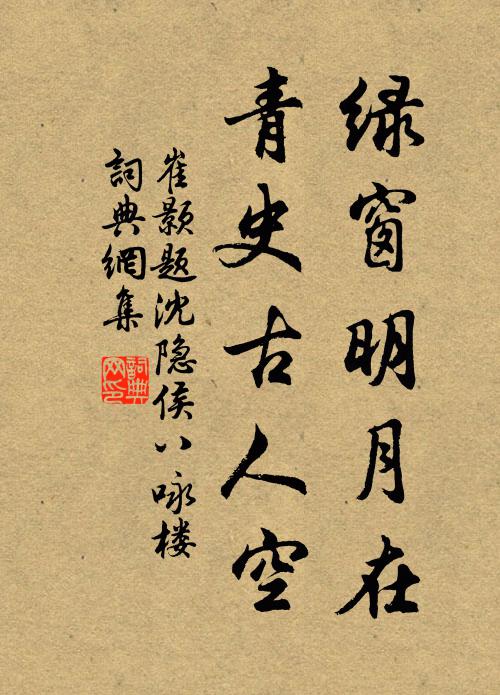 绿窗明月在
青史古人空
崔颢题沈隐侯八咏楼
詞典網集
詞典网印